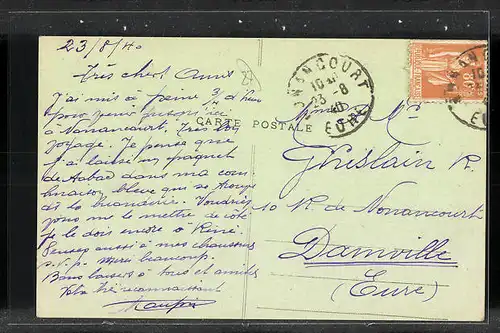 23/8/40
Très chers Amis
J'ai mis à peine 3/4 d'heure
pour venir jusqu'ici
à Nonancourt. Très bon
voyage. Je pense que
j'ai laissé un paquet
de tabac dans ma com
binaison bleue qui se trouve
ds la buanderie. Voudriez
vous me le mettre de côté
je le dois encore à René.
Pensez aussi à mes chaussures
s.v.p. Merci beaucoup.
Bons baisers à tous et amitiés
Votre très reconnaissant
27
CARTE POSTALE
NONANCOURT
10
23-8
40
EURE
Ghislain R.
10 R. de Nonancourt
Damville
(Eure)